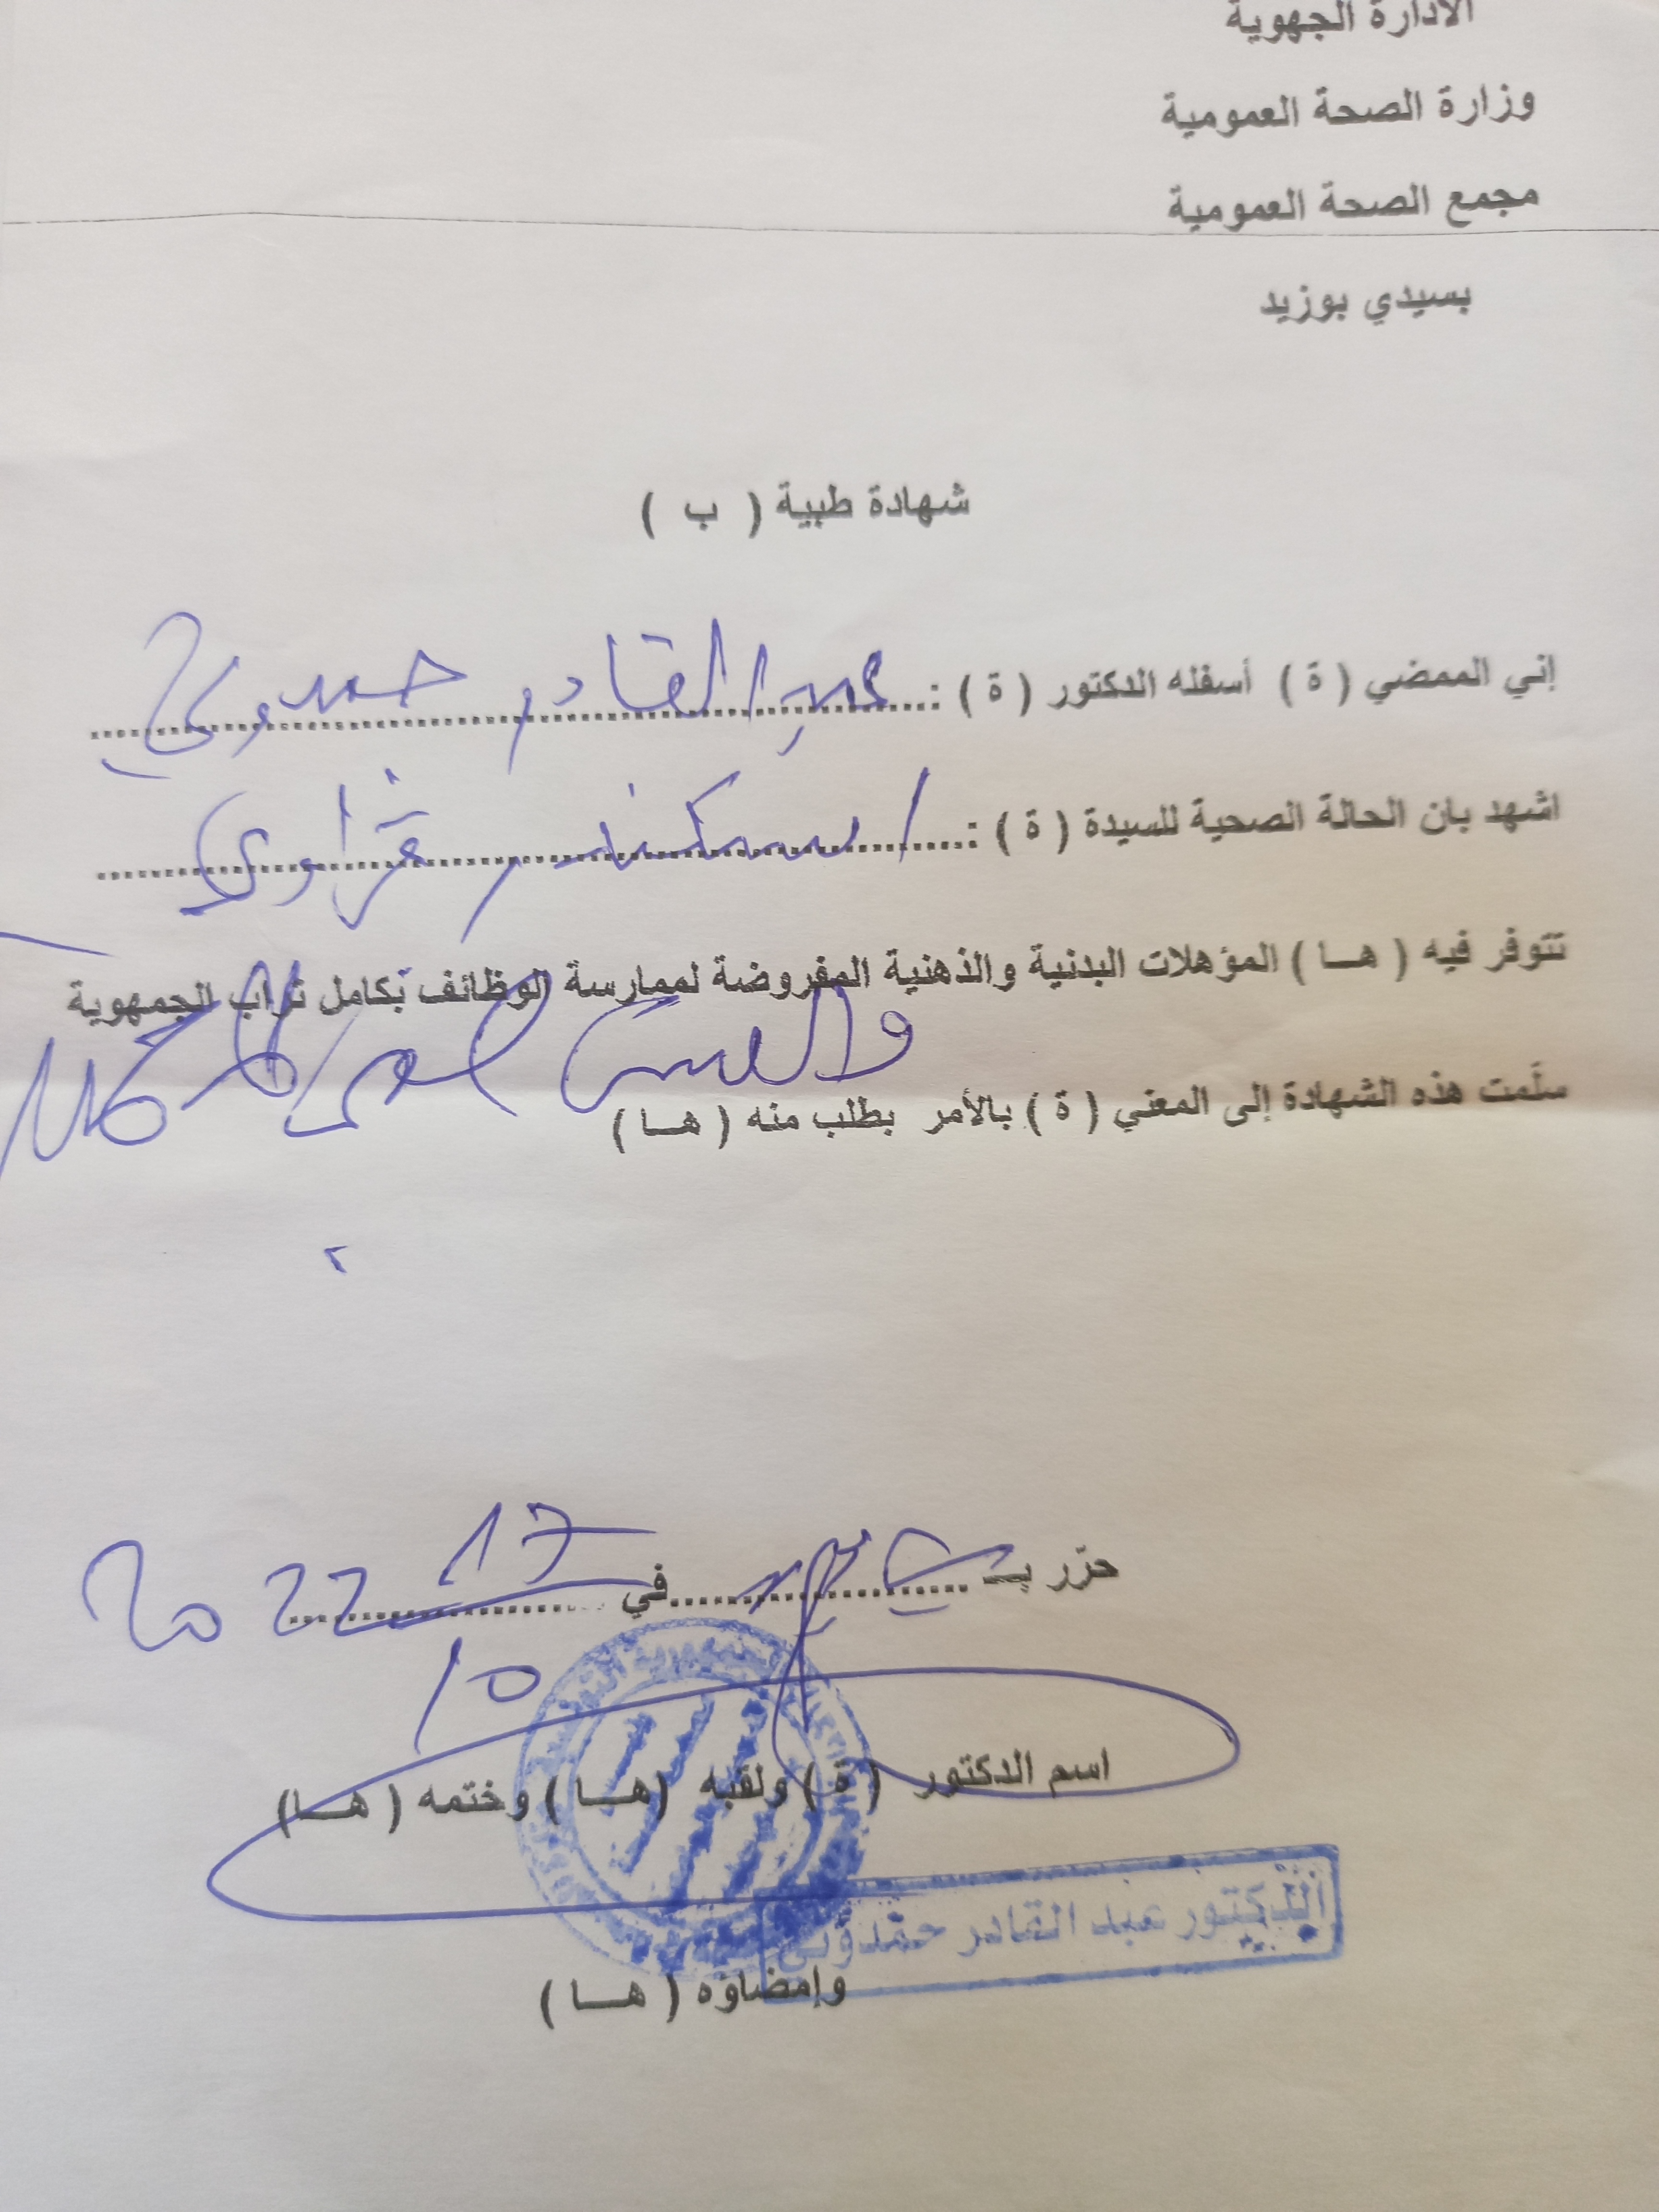 الادارة الجهوية
وزارة الصحة العمومية
مجمع الصحة العمومية
بسيدي بوزيد
شهادة طبية ( ب )
إني الممضي ( ة ) أسفله الدكتور ( ة ) : عبد القادر حمدوني
اشهد بان الحالة الصحية للسيدة ( ة ) : اسكندر غزاوي
تتوفر فيه ( هـا ) المؤهلات البدنية والذهنية المفروضة لممارسة الوظائف بكامل تراب الجمهورية
سلّمت هذه الشهادة إلى المعني ( ة ) بالأمر بطلب منه ( هـا )
حرّر بـ في 17/10 2022
اسم الدكتور ( ة ) ولقبه ( هـا ) وختمه ( هـا )
الدكتور عبد القادر حمدوني
وإمضاؤه ( هـا )